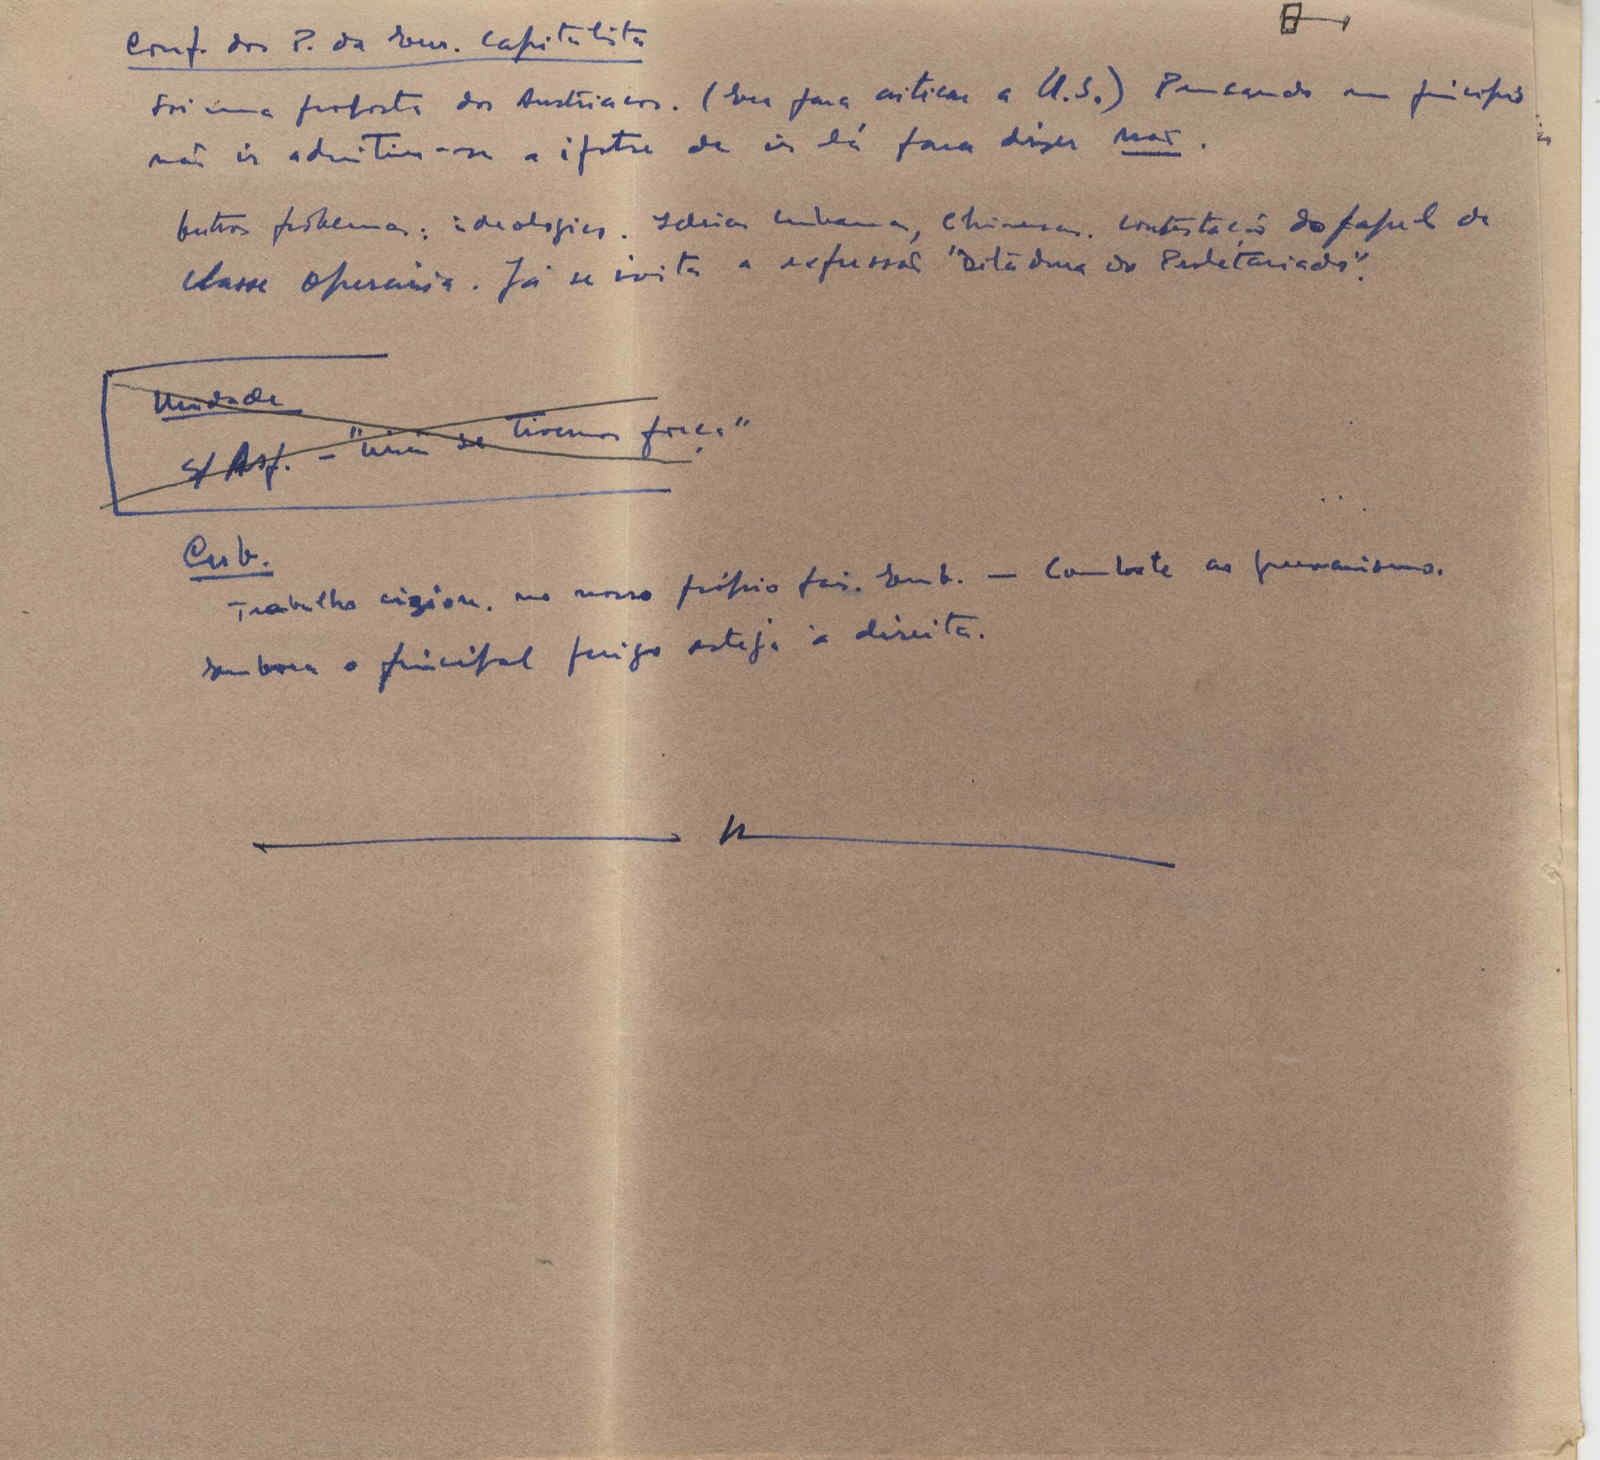 Conf. dos P. da Eur. Capitalista
Foi uma proposta dos Austríacos. (Era para criticar a U.S.) Pensando em princípio
não ir admitiu-se a ipotse de ir lá para dizer não.
Outros problemas: ideologico. Ideias cubanas, Chinesas. Contestação do papel da
classe operária. Já se evita a expressão "Ditadura do Proletariado".
Unidade
S/ Asp. - "Uni se tivermos força"
Cub.
Trabalho no nosso próprio país. Comb. — Combate ao
Embora o principal perigo esteja à direita.